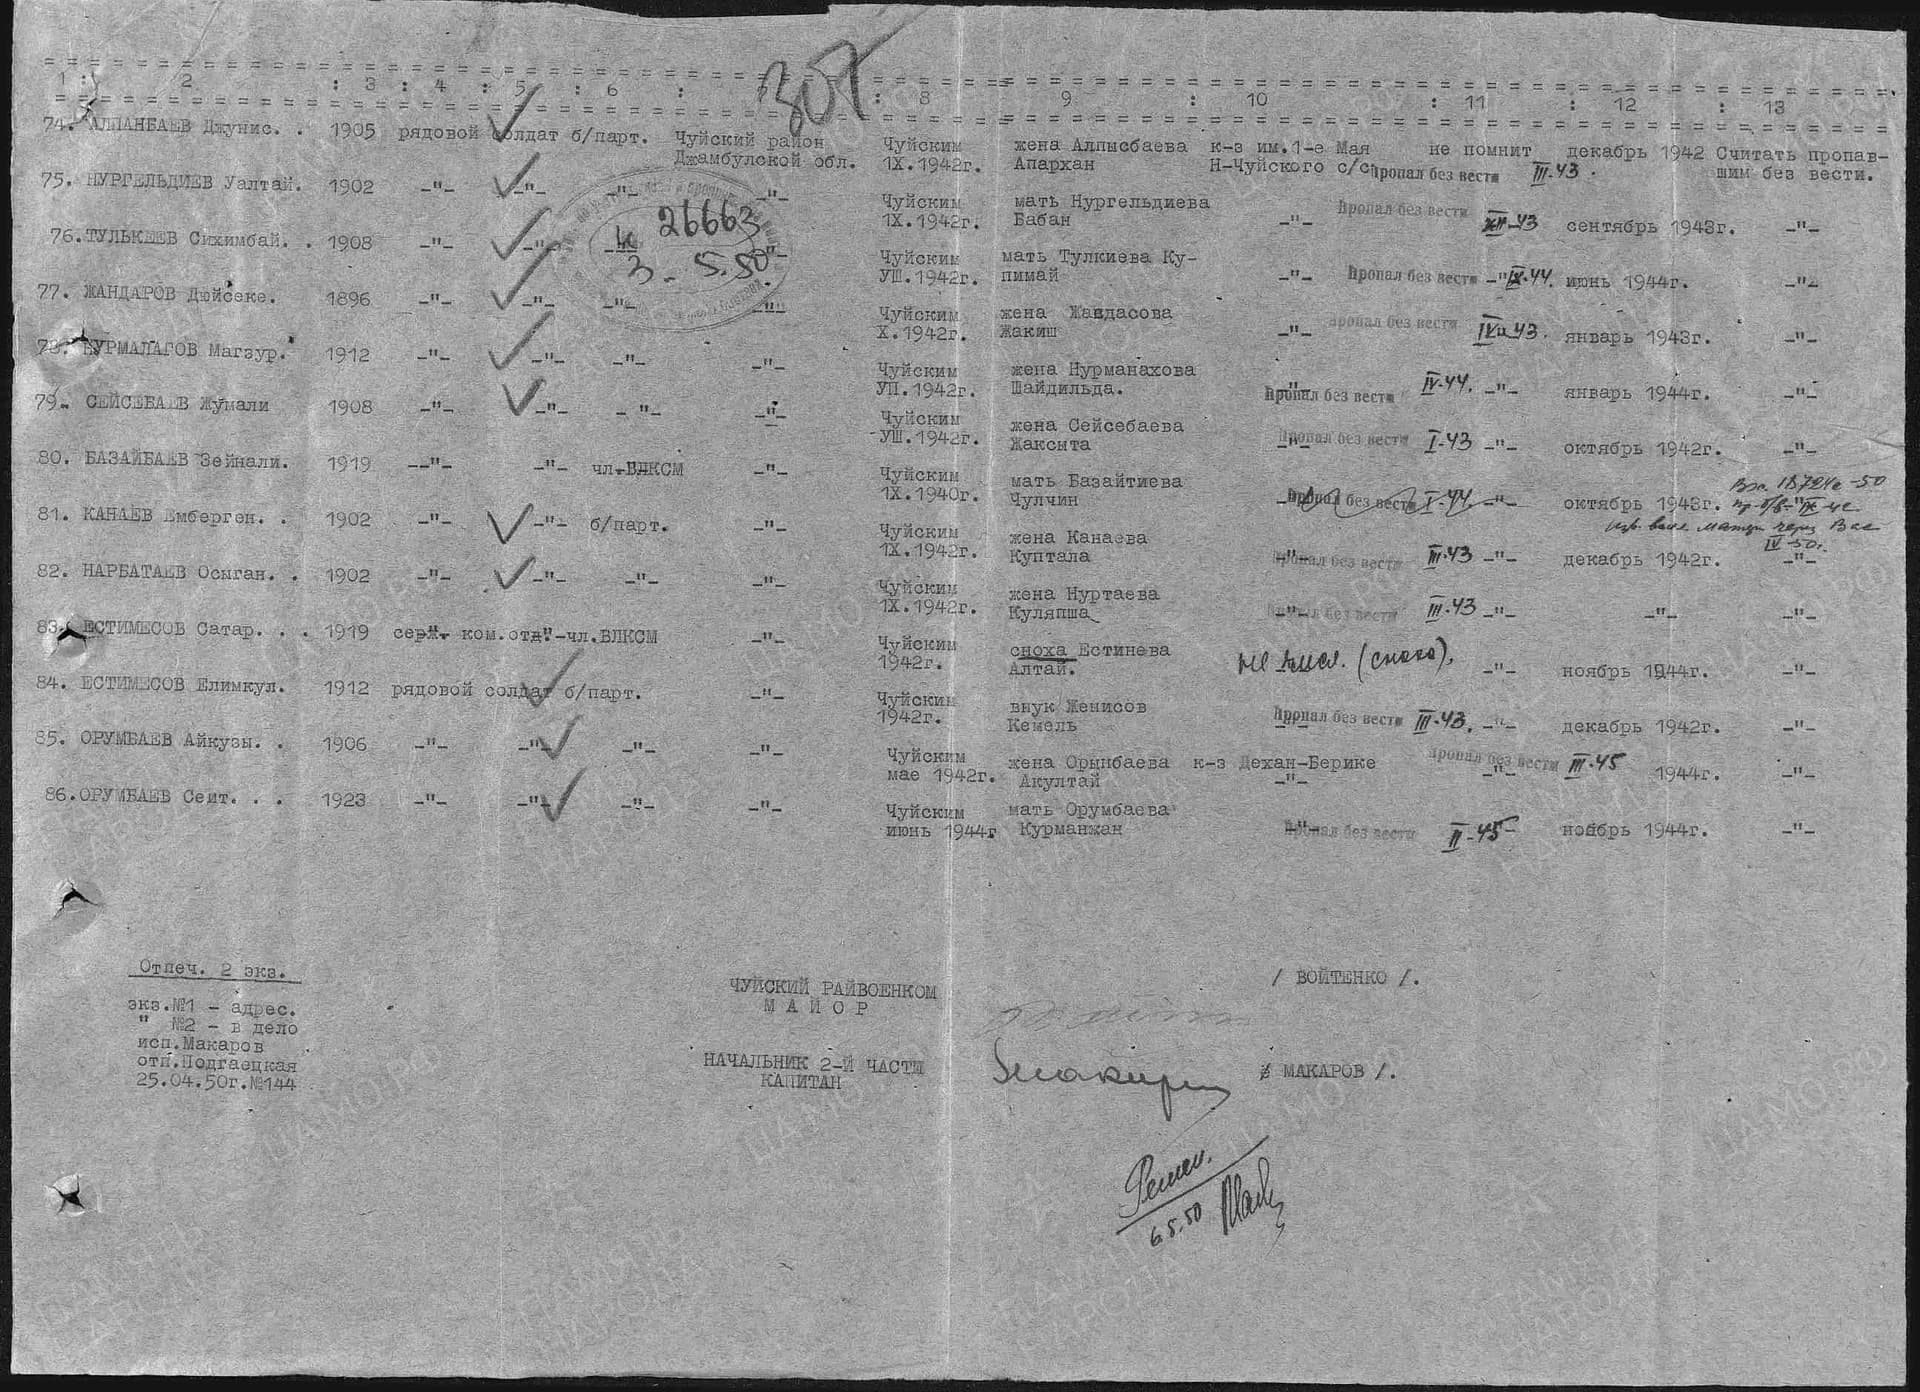 1 : 2 : 3 : 4 : 5 : 6 : : 8 9 : 10 : 11 : 12 : 13
307
74. АЛПАНБАЕВ Джунис. . 1905 рядовой солдат б/парт. Чуйский район Чуйским жена Алпысбаева к-з им.1-е Мая не помнит декабрь 1942 Считать пропав-
Джамбулской обл. 1X.1942г. Апархан Н-Чуйского с/с Пропал без вести III-43 шим без вести.
75. НУРГЕЛЬДИЕВ Уалтай. 1902 -"- -"- -"- -"- Чуйским мать Нургельдиева Пропал без вести
1X.1942г. Бабан -"- XII-43 сентябрь 1943г. -"-
26663
3 - 5.50
76. ТУЛЬКЕЕВ Сихимбай. . 1908 -"- -"- -"- Чуйским мать Тулкиева Ку-
УШ.1942г. пимай -"- Пропал без вести -"- IX-44. июнь 1944г. -"-
77. ЖАНДАРОВ Дюйсеке. 1896 -"- -"- -"- -"- Чуйским жена Жандасова Пропал без вести
X.1942г. Жакиш -"- 43. январь 1943г. -"-
78. НУРМАЛАГОВ Магзур. 1912 -"- -"- -"- -"- Чуйским жена Нурманахова
УП.1942г. Шайдильда. -"- Пропал без вести IV-44. -"- январь 1944г. -"-
79. СЕЙСЕБАЕВ Жумали 1908 -"- -"- -"- -"- Чуйским жена Сейсебаева
УШ.1942г. Жаксыта -"- Пропал без вести I-43 -"- октябрь 1942г. -"-
80. БАЗАЙБАЕВ Зейнали. 1919 -"- -"- чл.ВЛКСМ -"- Чуйским мать Базайтиева
1X.1940г. Чулчин -"- Пропал без вести I-44 -"- октябрь 1943г. -"-
81. КАНАЕВ Емберген. . 1902 -"- -"- б/парт. -"- Чуйским жена Канаева
IV-50г.
1X.1942г. Куптала -"- Пропал без вести III-43 -"- декабрь 1942г. -"-
82. НАРБАТАЕВ Осыган. . 1902 -"- -"- -"- -"- Чуйским жена Нуртаева
1X.1942г. Куляпша -"- Пропал без вести III-43 -"- -"- -"-
83. ЕСТИМЕСОВ Сатар. . . 1919 серж. ком.отд.-чл.ВЛКСМ -"- Чуйским сноха Естинева
1942г. Алтай. (сноха). -"- ноябрь 1944г. -"-
84. ЕСТИМЕСОВ Елимкул. 1912 рядовой солдат б/парт. -"- Чуйским внук Женисов
1942г. Кемель -"- Пропал без вести III-43. -"- декабрь 1942г. -"-
85. ОРУМБАЕВ Айкузы. . 1906 -"- -"- -"- -"- Чуйским жена Орынбаева к-з Дехан-Берике Пропал без вести III-45
мае 1942г. Акултай -"- -"- 1944г. -"-
86. ОРУМБАЕВ Сеит. . . 1923 -"- -"- -"- -"- Чуйским мать Орумбаева
июнь 1944г Курманжан -"- Пропал без вести II-45 -"- ноябрь 1944г. -"-
Отпеч. 2 экз.
экз.№1 - адрес.
" №2 - в дело
исп.Макаров
отп.Подгаецкая
25.04.50г.№144
ЧУЙСКИЙ РАЙВОЕНКОМ
МАЙОР
/ ВОЙТЕНКО /.
НАЧАЛЬНИК 2-Й ЧАСТИ
КАПИТАН
/ МАКАРОВ /.
6.5.50